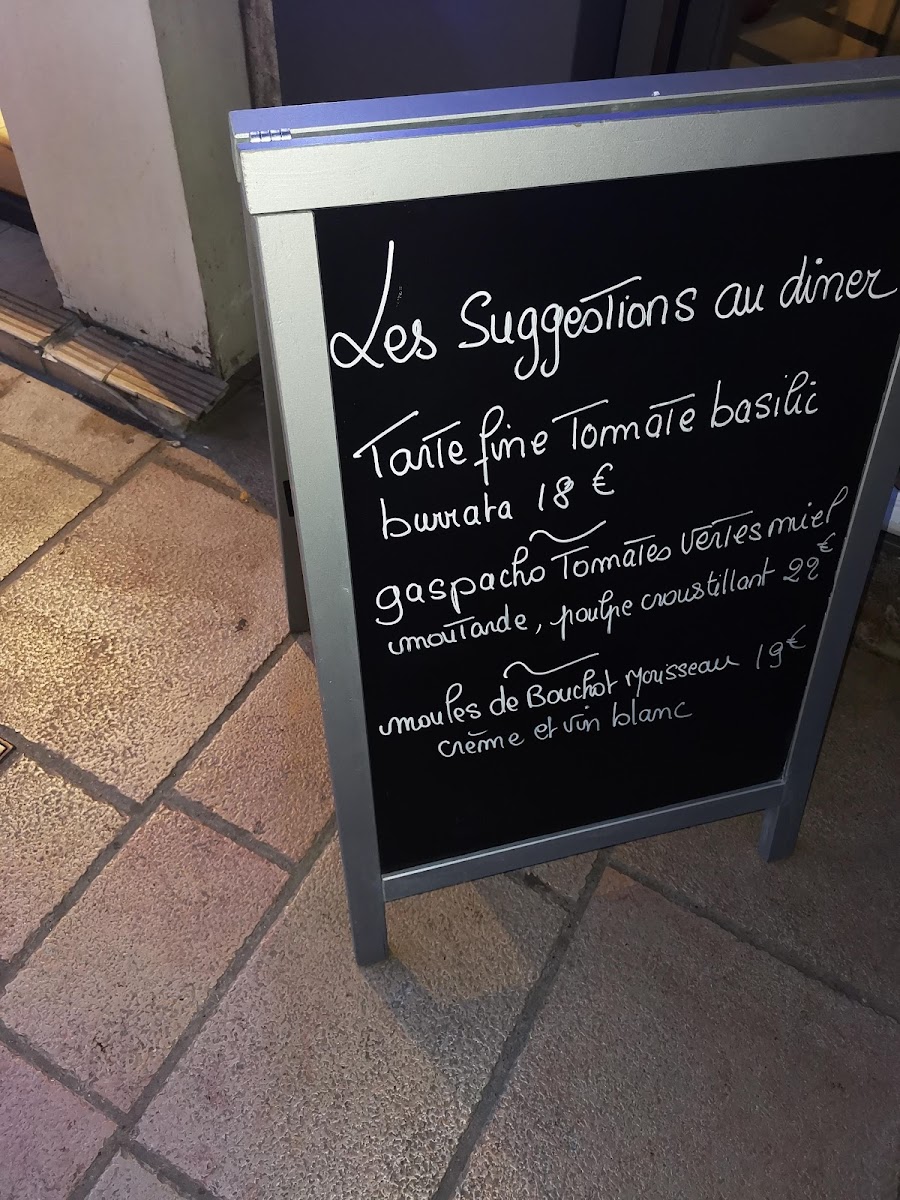 Les Suggestions au diner
Tarte fine Tomate basilic
burrata 18 €
gaspacho Tomates vertes miel
moutarde, poulpe croustillant 22€
moules de Bouchot Mousseau 19€
crème et vin blanc